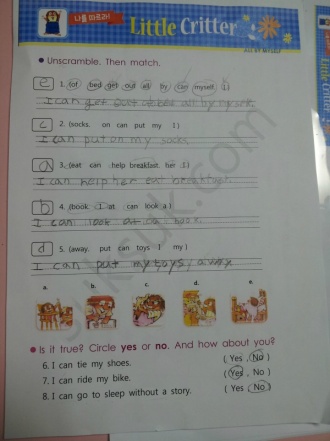 나를 따르라!
Little Critter
ALL BY MYSELF
Unscramble. Then match.
e 1. (of bed get out all by can myself I)
I can get out of bed all by myself.
c 2. (socks. on can put my I)
I can put on my socks
a 3. (eat can help breakfast. her I)
I can help her eat breakfast.
b 4. (book I at can look a)
I can look at a book.
d 5. (away. put can toys I my)
I can put my toys away
a. b. c. d. e.
Is it true? Circle yes or no. And how about you?
6. I can tie my shoes. (Yes, No)
7. I can ride my bike. (Yes, No)
8. I can go to sleep without a story. (Yes, No)
Little Cri